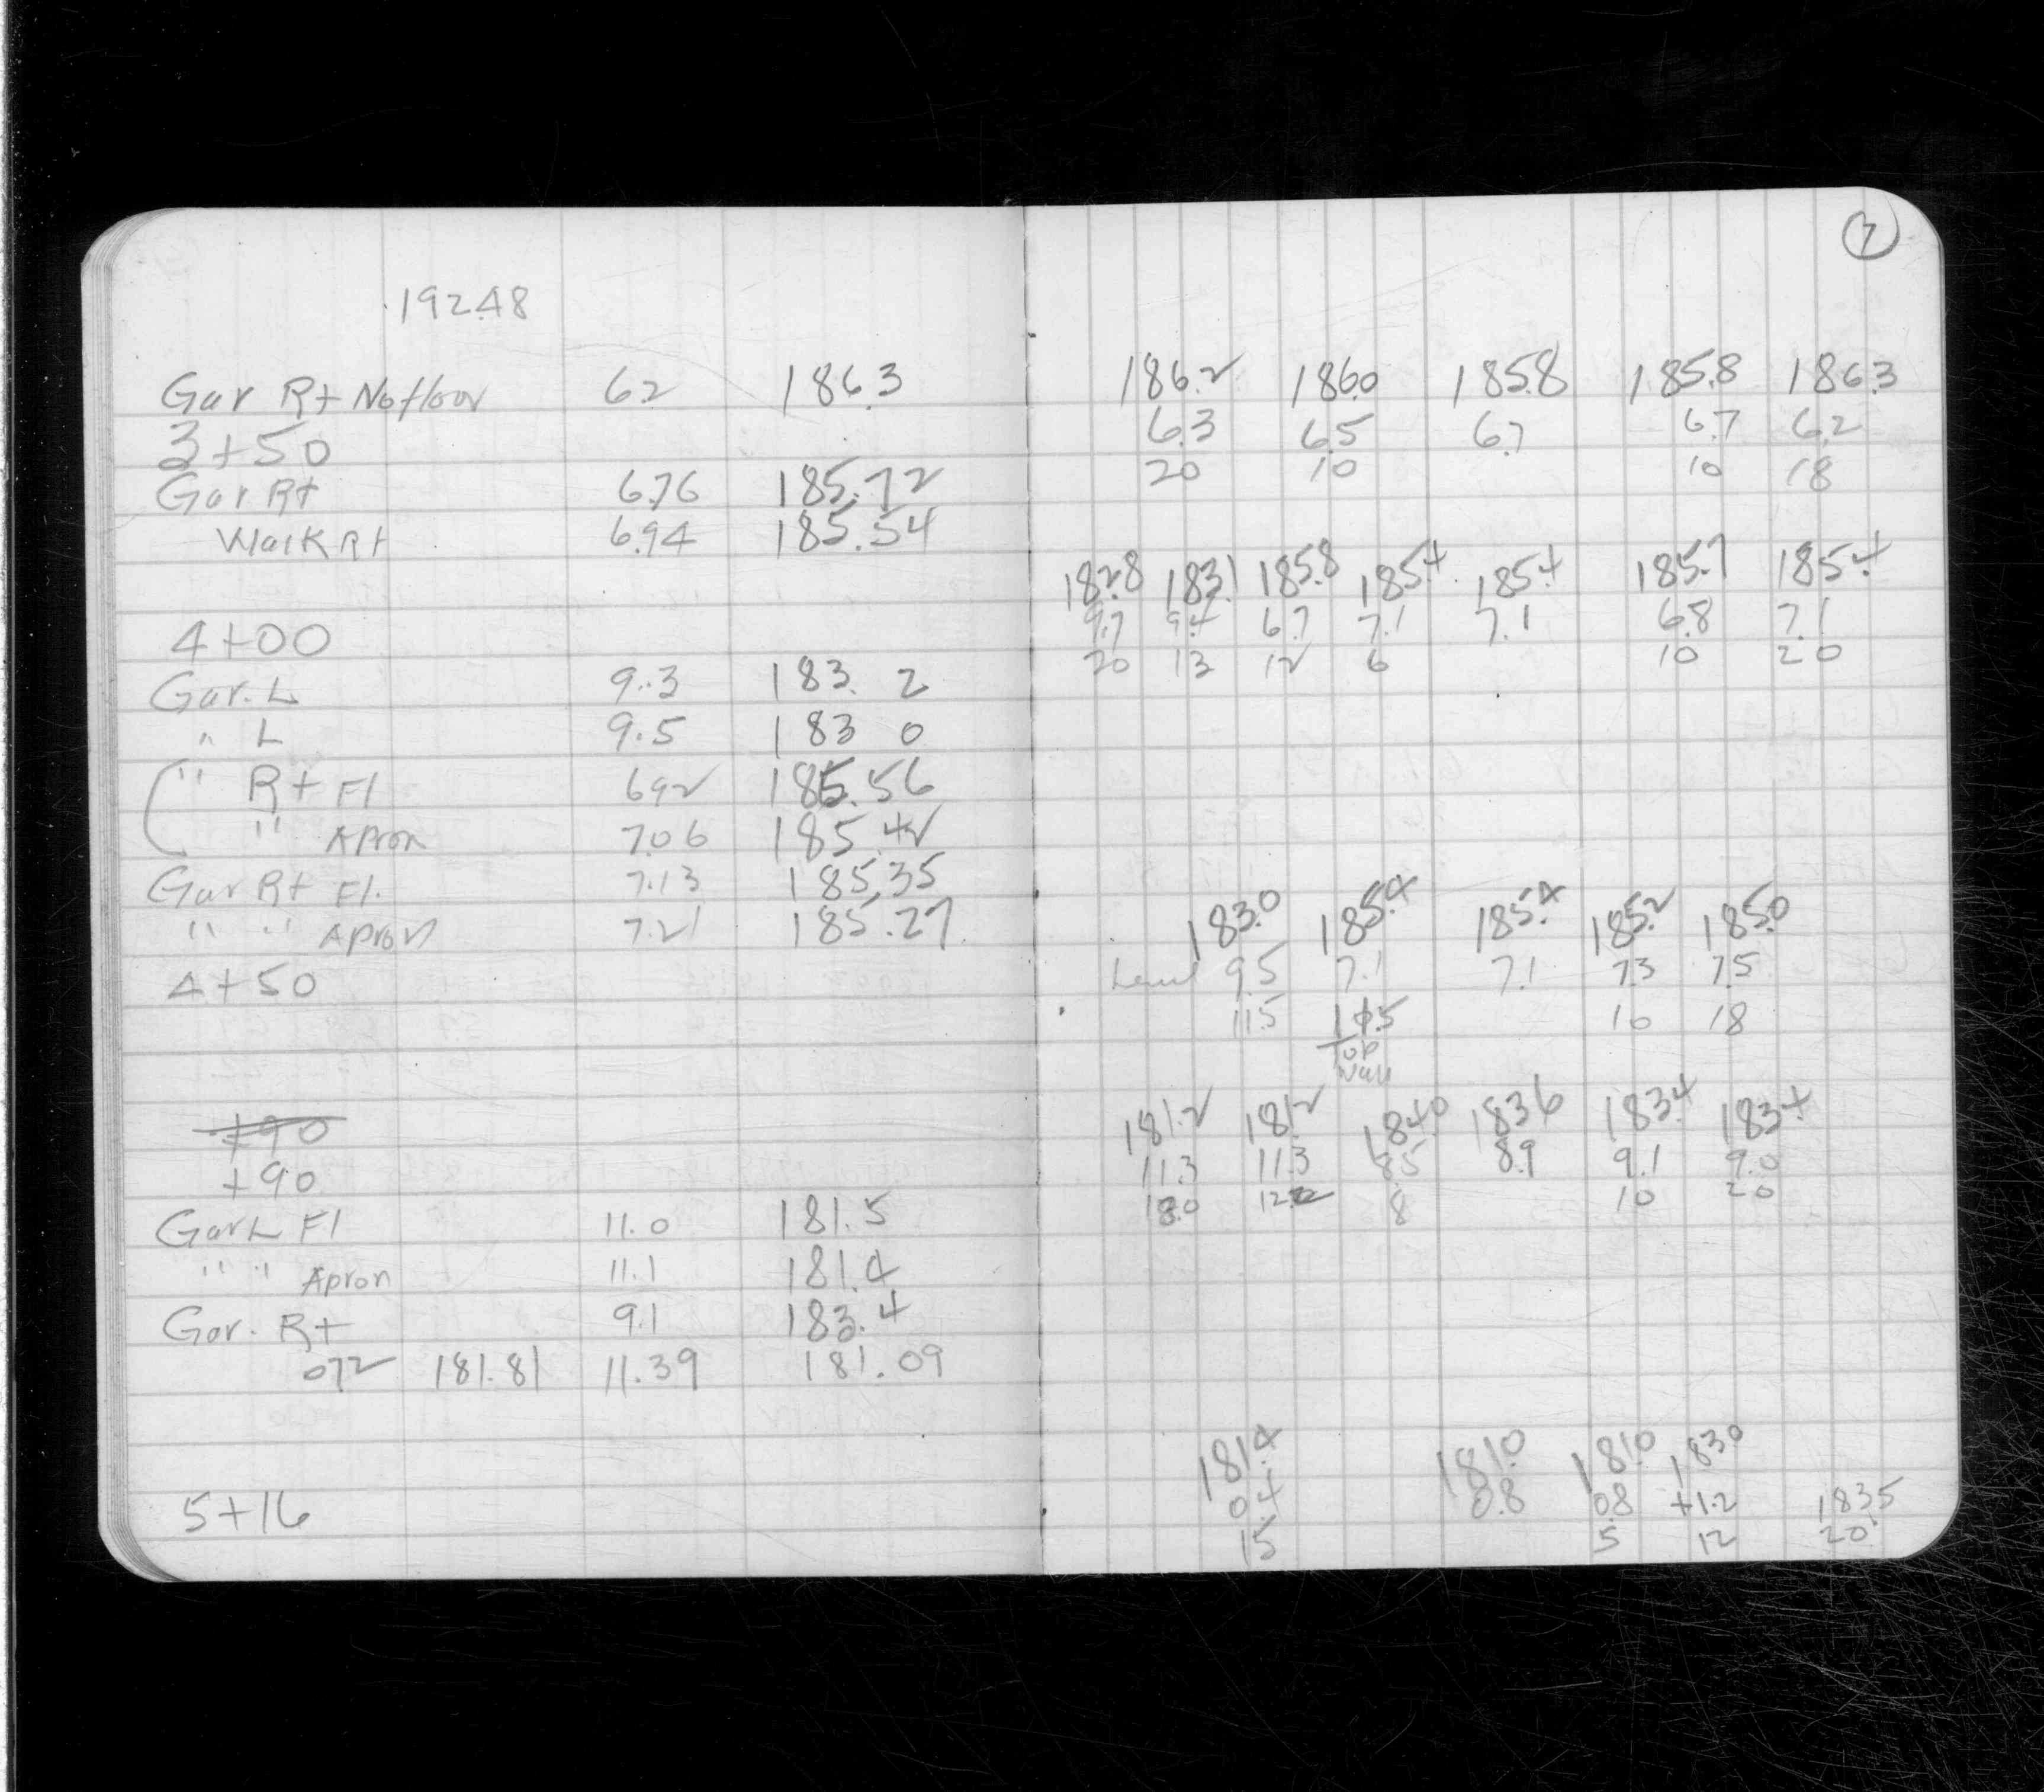 7
192.48
Gar Rt No floor 6.2 186.3
186.2 186.0 185.8 185.8 186.3
3+50 6.3 6.5 6.7 6.7 6.2
20 10 10 18
Gar Rt 6.76 185.72
Walk Rt 6.94 185.54
182.8 183.1 185.8 185.4 185.4 185.7 185.4
4+00 9.7 9.4 6.7 7.1 7.1 6.8 7.1
20 13 12 6 10 20
Gar. L 9.3 183. 2
" L 9.5 183 0
" Rt Fl 6.92 185.56
" Apron 7.06 185.42
Gar Rt Fl. 7.13 185.35
" " Apron 7.21 185.27
183.0 185.4 185.4 185.2 185.0
4+50 9.5 7.1 7.1 7.3 7.5
11.5 11.5 10 18
Top
Wall
+90
181.2 181.2 184.0 183.6 183.4 183.4
+90 11.3 11.3 8.5 8.9 9.1 9.0
18.0 12 8 10 20
Gar L Fl 11.0 181.5
" " Apron 11.1 181.4
Gar. Rt 9.1 183.4
0.72 181.81 11.39 181.09
181.4 181.0 181.0 183.0
5+16 0.4 0.8 0.8 +1.2 183.5
15 5 12 20